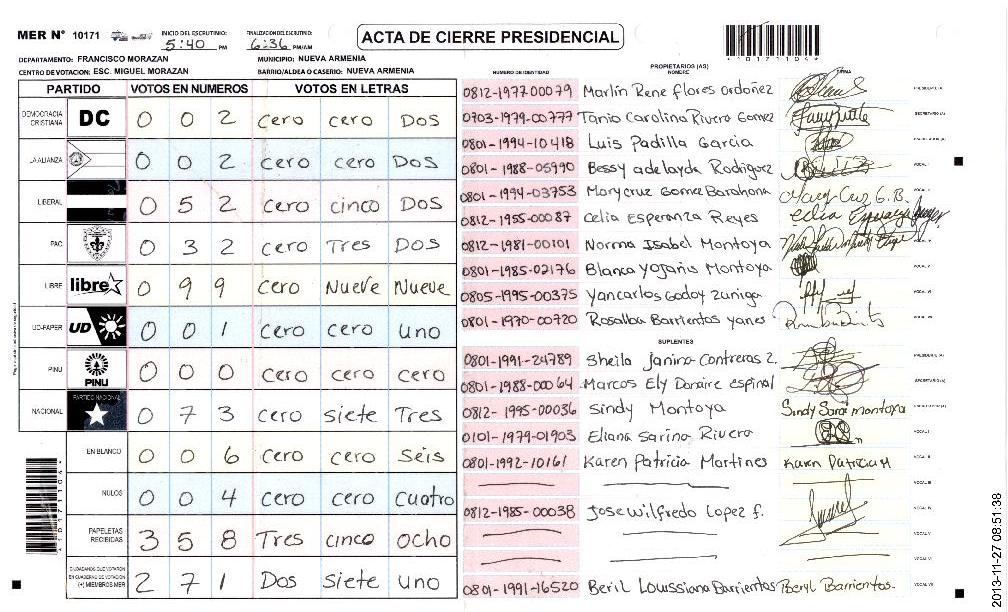 MER N° 10171
INICIO DEL ESCRUTINIO: 5:40 PM
FINALIZACION DEL ESCRUTINIO: 6:36 PM/AM
ACTA DE CIERRE PRESIDENCIAL
1017110 4
DEPARTAMENTO: FRANCISCO MORAZAN
MUNICIPIO: NUEVA ARMENIA
CENTRO DE VOTACION: ESC. MIGUEL MORAZAN
BARRIO/ALDEA O CASERIO: NUEVA ARMENIA
PARTIDO VOTOS EN NUMEROS VOTOS EN LETRAS
DEMOCRACIA CRISTIANA DC 0 0 2 cero cero Dos
LA ALIANZA 0 0 2 cero cero Dos
LIBERAL 0 5 2 cero cinco Dos
PAC 0 3 2 cero Tres Dos
LIBRE libre 0 9 9 cero Nueve Nueve
UD-FAPER UD 0 0 1 cero cero uno
PINU PINU 0 0 0 cero cero cero
NACIONAL PARTIDO NACIONAL 0 7 3 cero siete Tres
EN BLANCO 0 0 6 cero cero Seis
NULOS 0 0 4 cero cero cuatro
PAPELETAS RECIBIDAS 3 5 8 Tres cinco ocho
CIUDADANOS QUE VOTARON EN CUADERNO DE VOTACION (+) MIEMBROS MER 2 7 1 Dos siete uno
PROPIETARIOS (AS)
NUMERO DE IDENTIDAD NOMBRE FIRMA
0812-1977-00079 Marlin Rene flores ordoñez PRESIDENTE/A
0703-1979-00777 Tania Carolina Rivera Gomez SECRETARIO (A)
0801-1994-10418 Luis Padilla Garcia
0801-1988-05990 Bessy adelayda Rodriguez VOCAL I
0801-1994-03753 Marycruz Gomez Barahona Mary Cruz G.B. VOCAL II
0812-1955-00087 Celia Esperanza Reyes Celia
0812-1981-00101 Norma Isabel Montoya
0801-1985-02176 Blanca Yojanis Montoya VOCAL V
0805-1995-00375 yancarlos Godoy zuniga VOCAL VI
0801-1970-00720 Rosalba Barrientos yanes VOCAL VII
SUPLENTES
0801-1991-24789 Sheila Janina Contreras Z. PRESIDENTE (A)
0801-1988-00064 Marcos Ely Donaire espinal SECRETARIO (A)
0812-1995-00036 Sindy Montoya Sindy Sarai montoya
0101-1979-01903 Eliana Sarina Rivera VOCAL I
0801-1992-10161 Karen Patricia Martines Karen Patricia M VOCAL II
VOCAL III
0812-1985-00038 Jose Wilfredo Lopez f. VOCAL IV
VOCAL V
VOCAL VI
0801-1991-16520 Beril Louissiana Barrientos Beryl Barrientos. VOCAL VII
2013-11-27 08:51:38